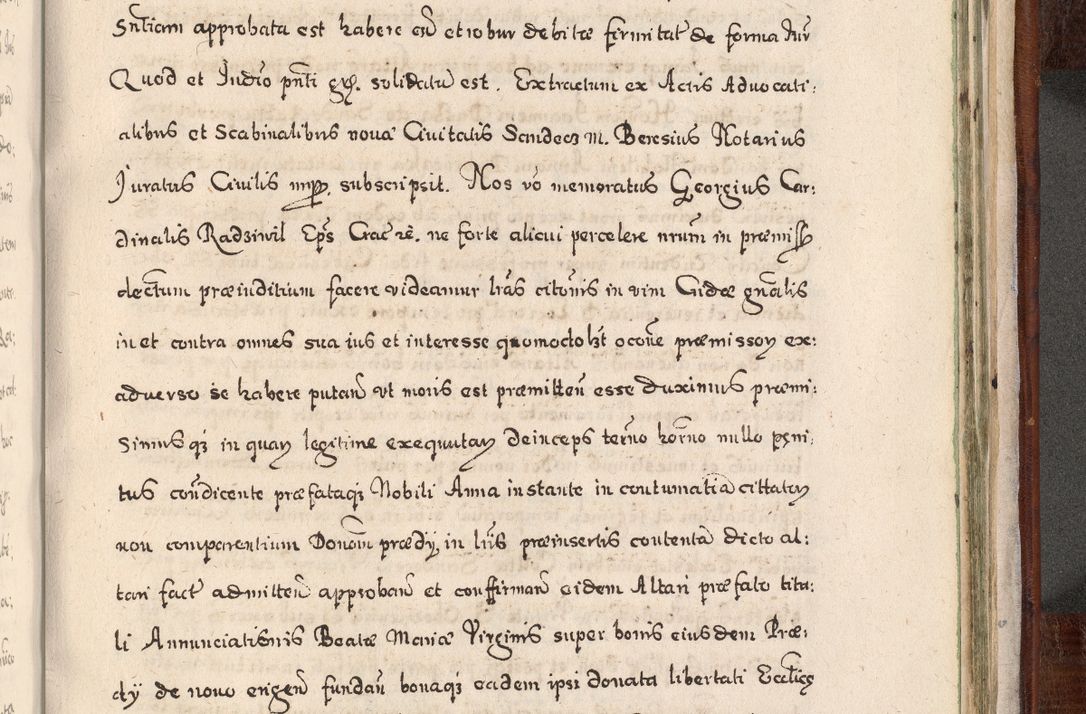 Sntiam approbata est habere em et robur debitæ firmitat de forma Jur
Quod et Judio pnti grh. solidatū est. Extractum ex Actis Advocati:
alibus et Scabinalibus novæ Civitatis Sandecz M. Beresius Notarius
Juratus Civilis mpp subscripsit. Nos vō memoratus Georgius Car:
dinalis Radziwil Epūs Crac rē. ne forte alicui percelere nrum in præmiss
dectum præiuditium facere videamur lrās citonis in vim Cridæ gnalis
in et contra omnes sua ius et interesse quomodolbt ocone præmissory ex:
adverso se habere putan ut moris est præmitten esse duximus præmi:
simusqz in quay legitime exequutay deinceps terno horno nullo pæni:
tus condicente præfataqz Nobili Anna instante in contumatiā cittatoy
non comparentium Donam prædij, in lris præinsertis contentā dicto al:
tari fact admitten approban et confirman eidem Altari præfato titu:
li Annunciationis Beatæ Mariæ Virginis super bonis eiusdem Præ:
dij de novo erigen fundan bonaqz eadem ipsi donata libertati Ecclicæ